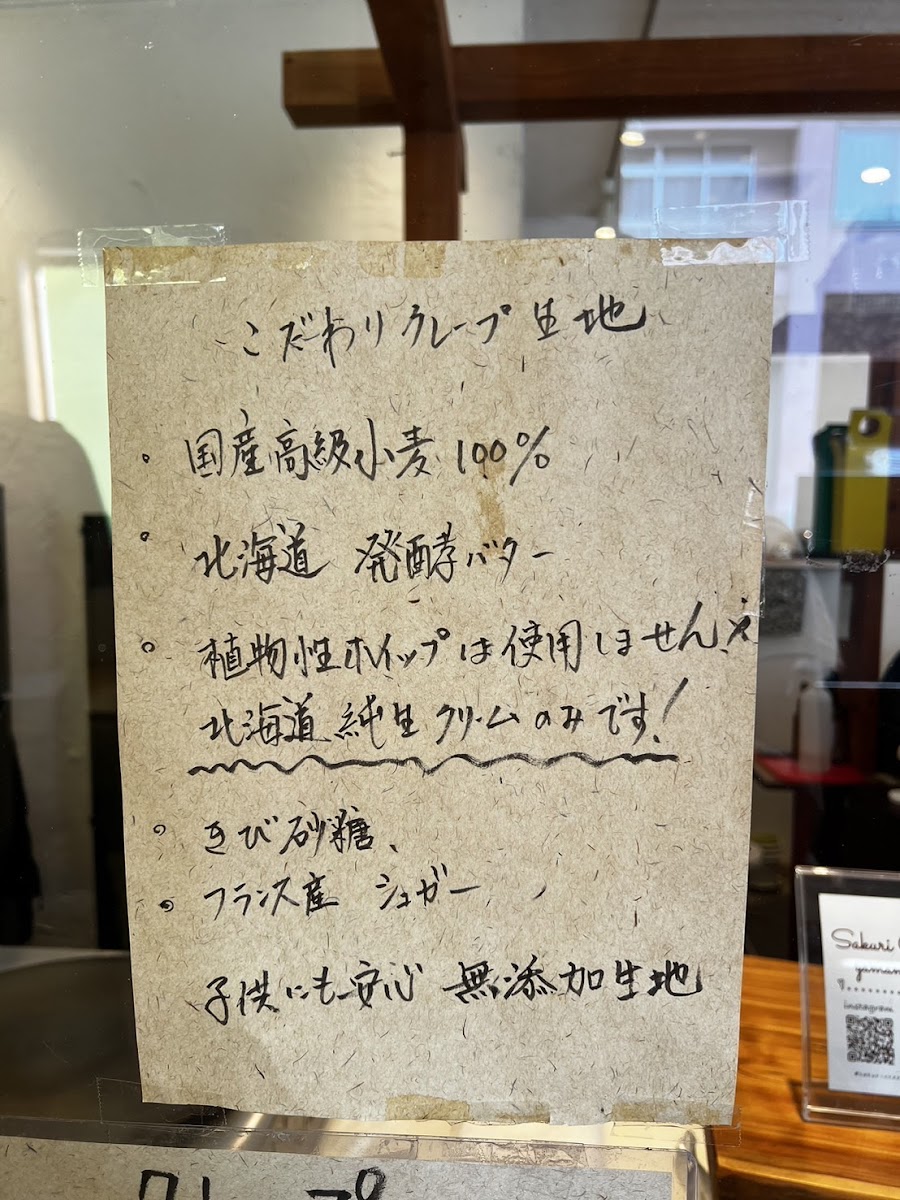 こだわりクレープ生地
・国産高級小麦100%
・北海道 発酵バター
・植物性ホイップは使用しません
北海道純生クリームのみです!
・きび砂糖、
・フランス産 シュガー
子供にも安心 無添加生地
Sakuri
yaman
instagram